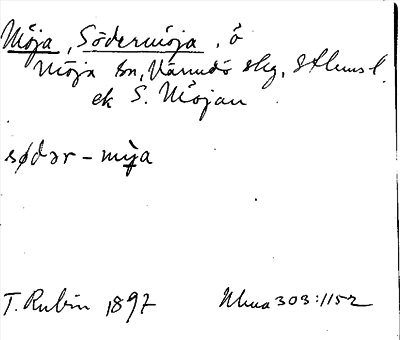 Möja, Södermöja, ö
Möja sn, Värmdö skg, Sthms l.
ek S. Möjan
sødər-mỳja
T. Rubin 1897 Uhua 303:1152